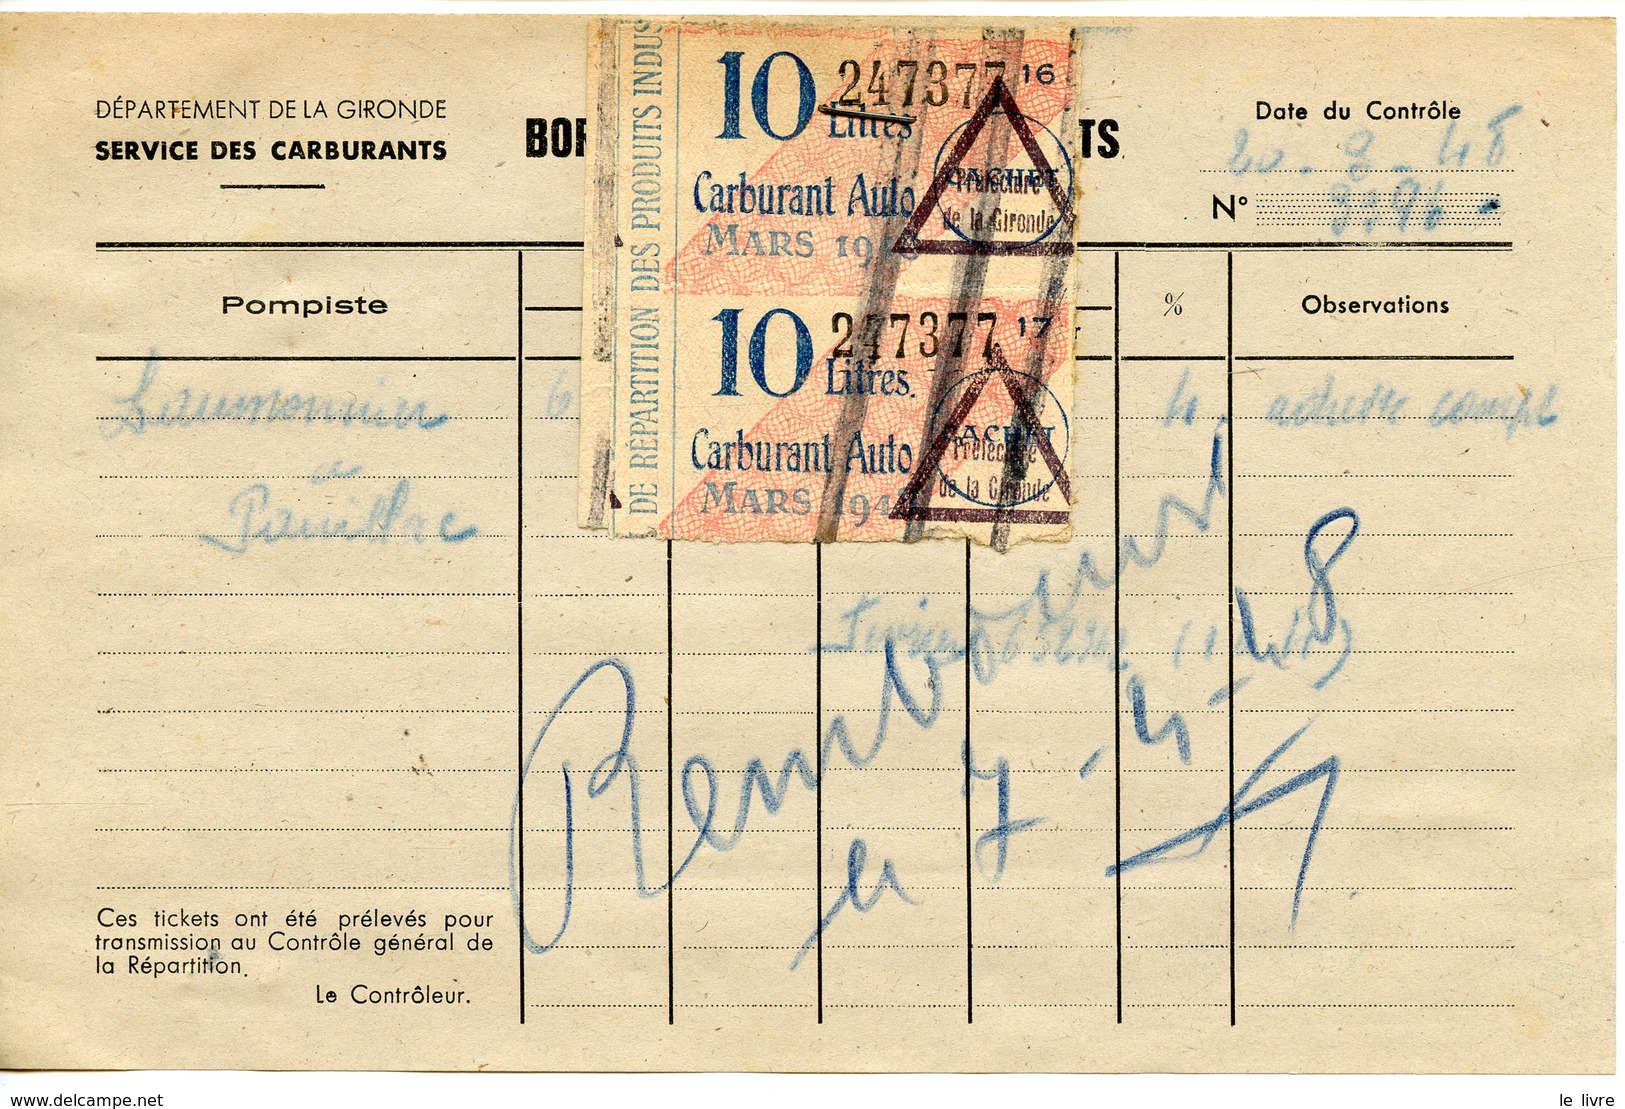 DÉPARTEMENT DE LA GIRONDE
SERVICE DES CARBURANTS
BOR
TS
Date du Contrôle
20 - 3 - 48
N°
DE RÉPARTITION DES PRODUITS INDUS
10 Litres
247377
16
Carburant Auto
MARS 1948
CACHET
Préfecture
de la Gironde
10 Litres.
247377
17
Carburant Auto
MARS 1948
CACHET
Préfecture
de la Gironde
Pompiste
%
Observations
6
4
compl
à
Pauillac
Février
Remboursé
le 7 - 4 - 48
Ces tickets ont été prélevés pour
transmission au Contrôle général de
la Répartition.
Le Contrôleur.
www.delcampe.net
le livre